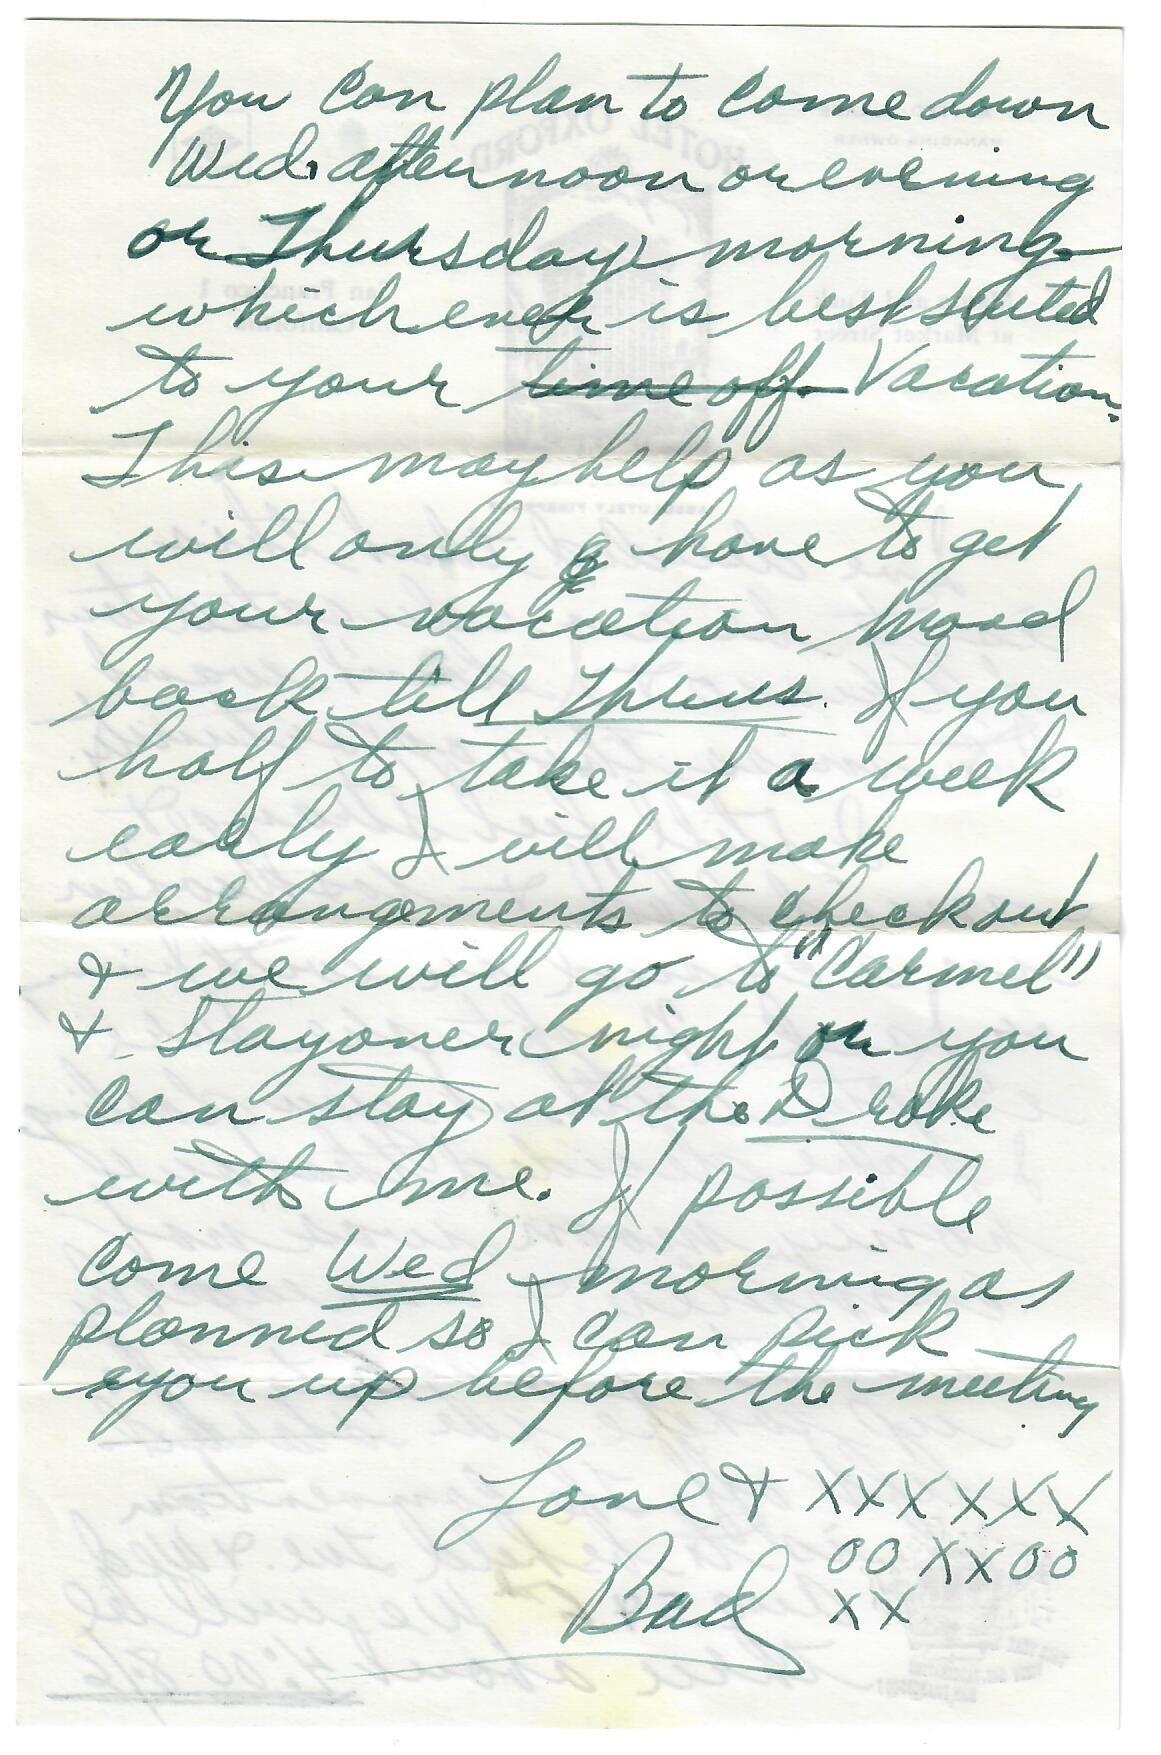 You can plan to come down
Wed. afternoon or evening
or Thursday morning
which ever is best suited
to your time off. Vacation.
This may help as you
will only have to get
your vacation mood
back till Thurs. If you
half to take it a week
early I will make
arrangements to checkout
& we will go to "Carmel"
& stay over night or you
can stay at the Drake
with me. If possible
come Wed morning as
planned so I can pick
you up before the meeting
Love & XXXXXX
OOXXOO
Bud XX